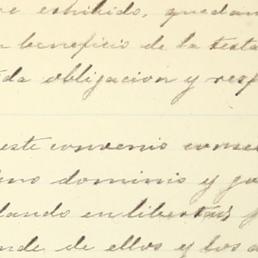 exhibido, quedan
beneficio de la testa
da obligacion y resp
este convenio conse
eno dominio y go
dando en libertad
nde de ellos y los